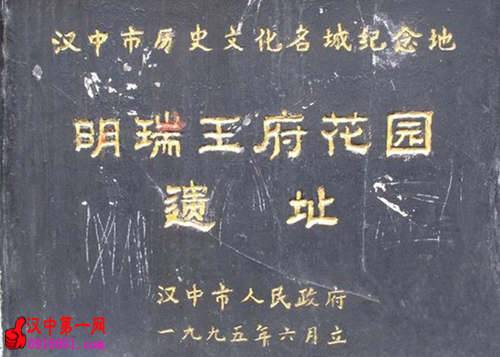 汉中市历史文化名城纪念地
明瑞王府花园
遗址
汉中市人民政府
一九九五年六月立
汉中第一网